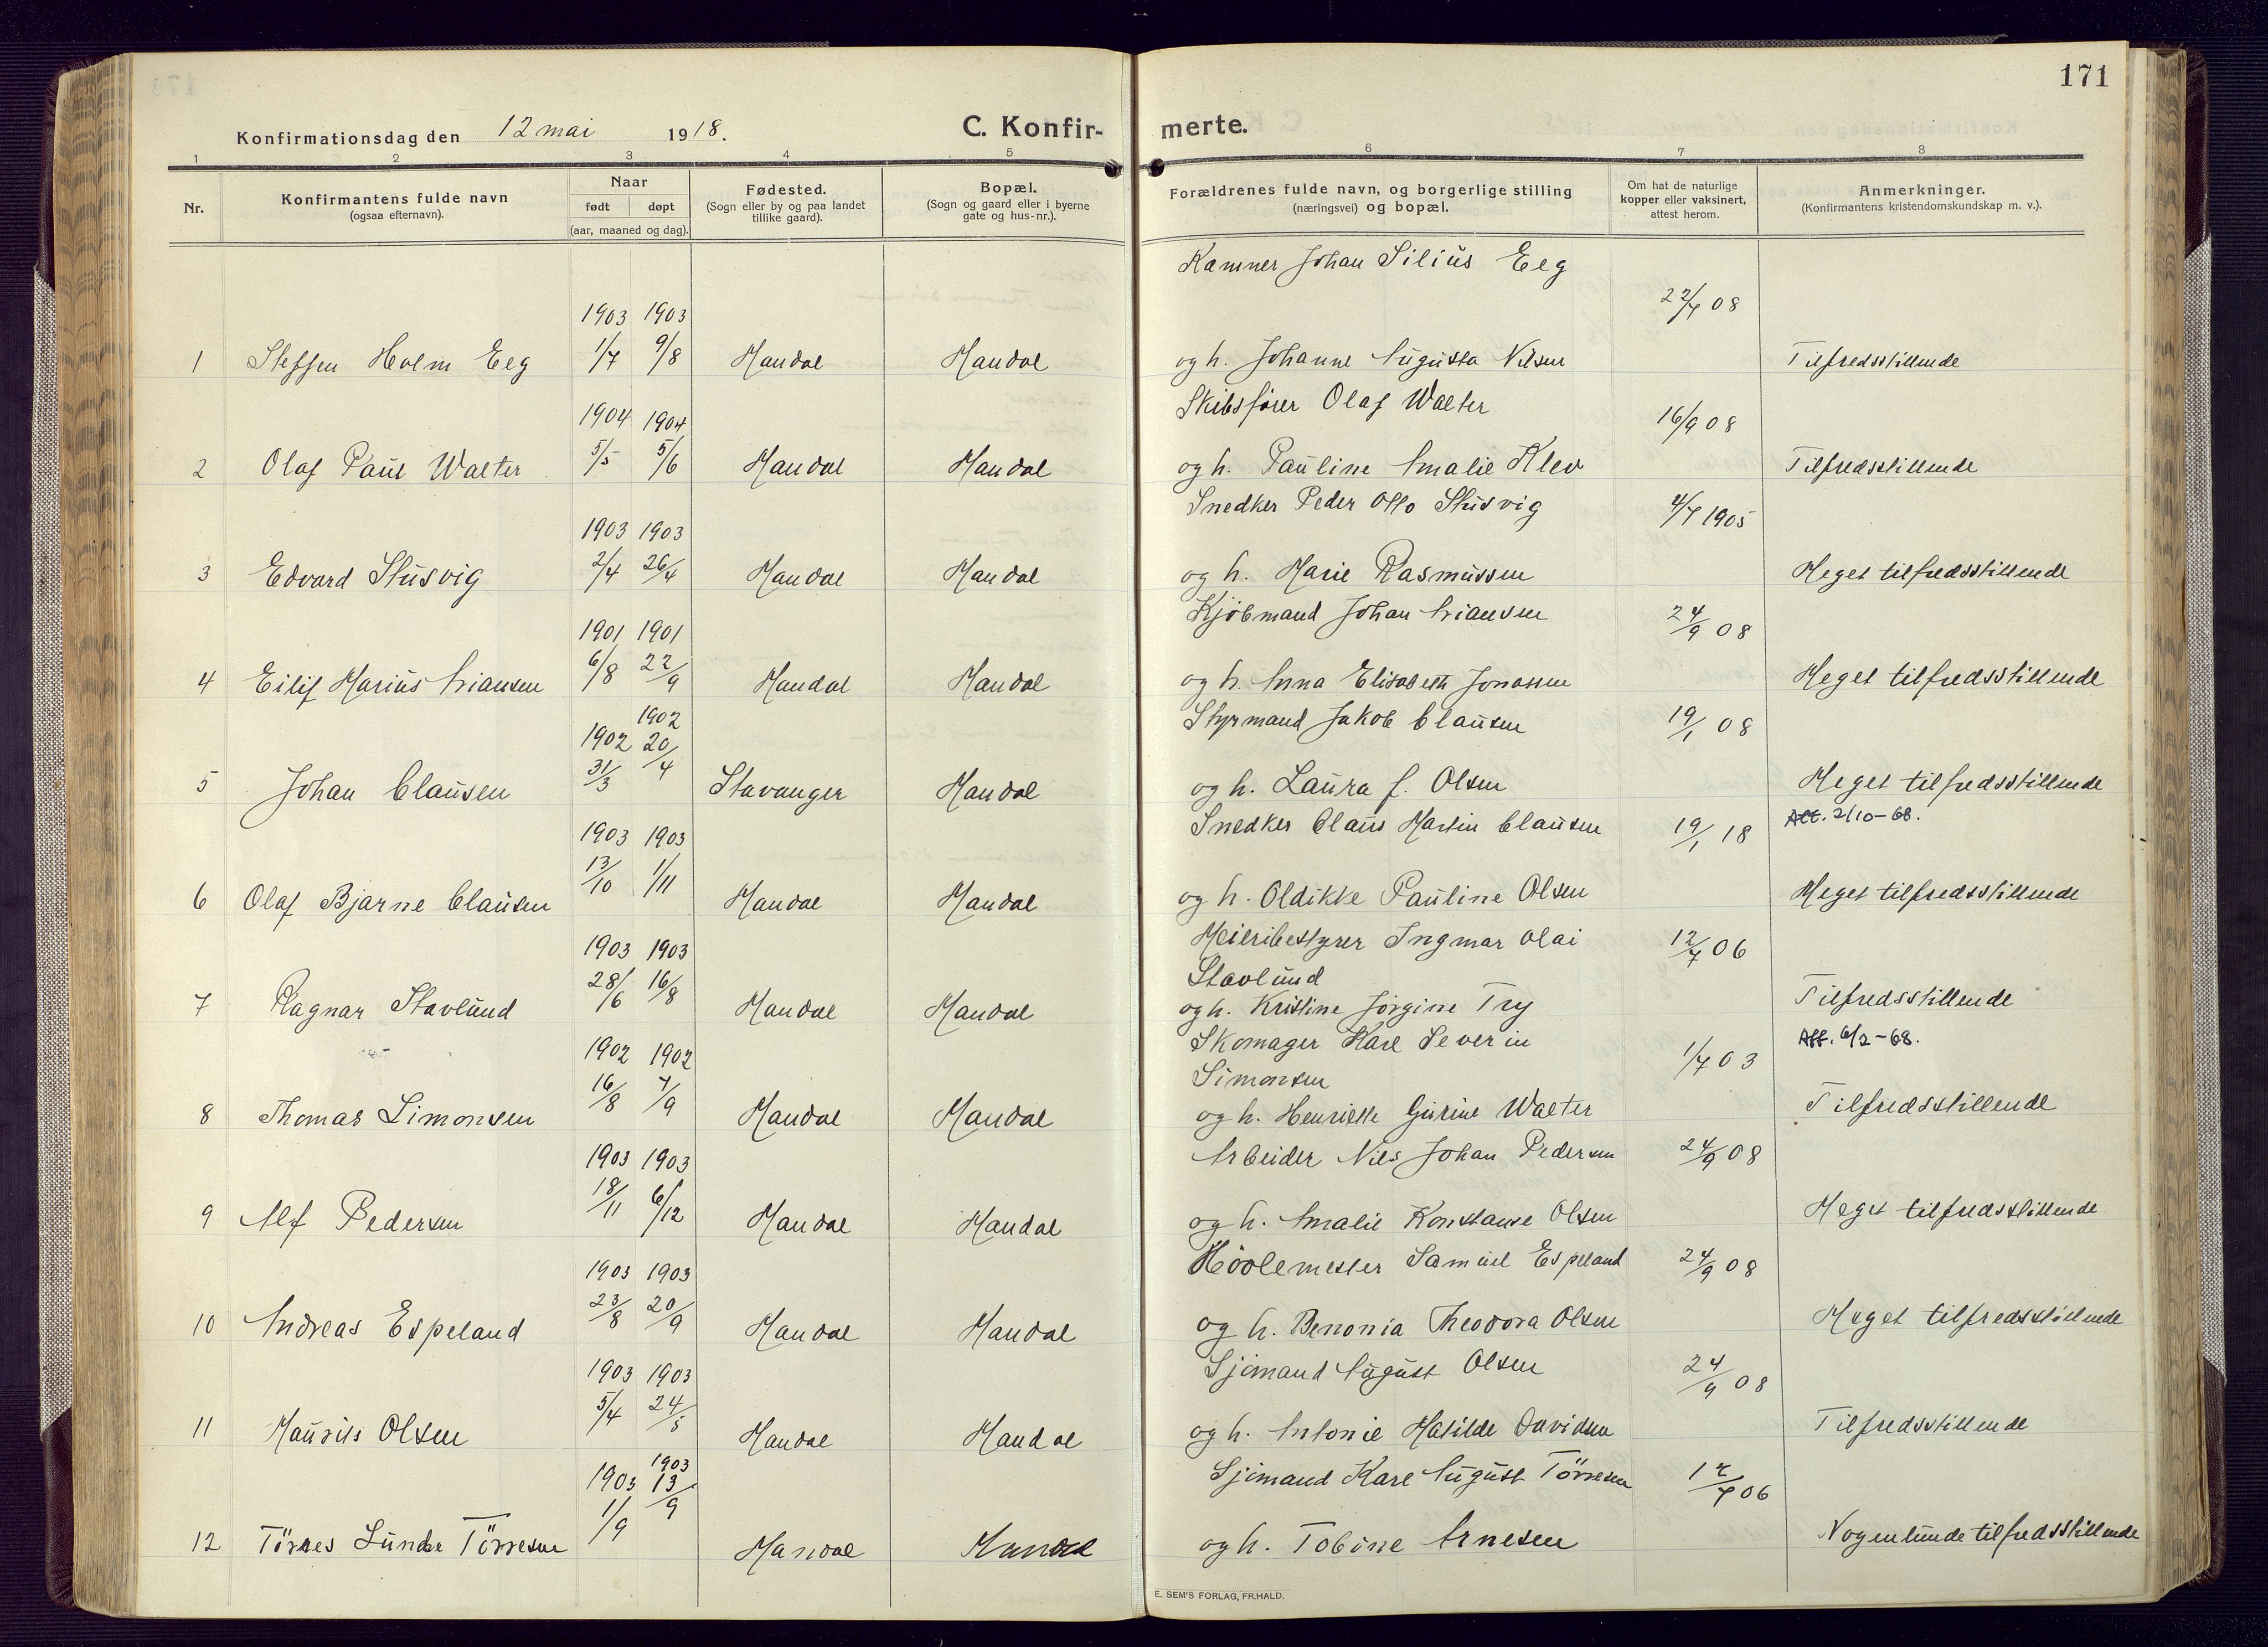 171
Konfirmationsdag den 12 mai 1918. C. Konfir- merte.
1 2 3 4 5 6 7 8
Nr. Konfirmantens fulde navn (ogsaa efternavn). Naar født døpt (aar, maaned og dag). Fødested. (Sogn eller by og paa landet tillike gaard). Bopæl. (Sogn og gaard eller i byerne gate og hus-nr.). Forældrenes fulde navn, og borgerlige stilling (næringsvei) og bopæl. Om hat de naturlige kopper eller vaksinert, attest herom. Anmerkninger. (Konfirmantens kristendomskundskap m. v.).
Kæmner Johan Silius Eeg
1903 1903 22/7 08
1 Steffen Holm Eeg 1/7 9/8 Mandal Mandal og h. Johanne Augusta Nilsen Tilfredsstillende
1904 1904 Skibsfører Olaf Walter 16/9 08
2 Olaf Paul Walter 5/5 5/6 Mandal Mandal og h. Pauline Amalie Klev Tilfredsstillende
1903 1903 Snedker Peder Otto Stusvig 4/7 1905
3 Edvard Stusvig 2/4 26/4 Mandal Mandal og h. Marie Rasmussen Meget tilfredsstillende
1901 1901 Kjøbmand Johan Ariansen 24/9 08
4 Eilif Marius Ariansen 6/8 22/9 Mandal Mandal og h. Anna Elisabeth Jonassen Meget tilfredsstillende
1902 1902 Styrmand Jakob Clausen 19/1 08
5 Johan Clausen 31/3 20/4 Stavanger Mandal og h. Laura f. Olsen Meget tilfredsstillende
1903 1903 Snedker Claus Martin Clausen 19/1 18 Att. 2/10-68.
6 Olaf Bjarne Clausen 13/10 1/11 Mandal Mandal og h. Oldikke Pauline Olsen Meget tilfredsstillende
1903 1903 Meieribestyrer Ingmar Olai 12/7 06
Stavlund
7 Ragnar Stavlund 28/6 16/8 Mandal Mandal og h. Kristine Jörgine Try Tilfredsstillende
1902 1902 Skomager Karl Severin 1/7 03 Att. 6/2-68.
Simonsen
8 Thomas Simonsen 16/8 7/9 Mandal Mandal og h. Henriette Gurine Walter Tilfredsstillende
1903 1903 Arbeider Nils Johan Pedersen 24/9 08
9 Alf Pedersen 18/11 6/12 Mandal Mandal og h. Amalie Konstanse Olsen Meget tilfredsstillende
1903 1903 Samuel Espeland 24/9 08
10 Andreas Espeland 23/8 20/9 Mandal Mandal og h. Benonia Theodora Olsen Meget tilfredsstillende
1903 1903 Sjömand August Olsen 24/9 08
11 Mauritz Olsen 5/4 24/5 Mandal Mandal og h. Antonie Matilde Davidsen Tilfredsstillende
1903 1903 Sjömand Karl August Törresen 12/7 06
12 Törres Lunde Törresen 1/9 13/9 Mandal Mandal og h. Tobine Arnesen Nogenlunde tilfredsstillende
E. SEM'S FORLAG, FR.HALD.